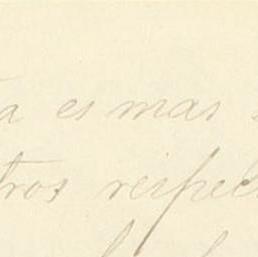 a es mas
tros respec